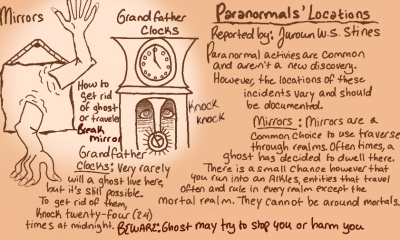 Mirrors
Grandfather
Clocks
How to
get rid
of ghost
or traveler
Break
mirror
Knock
knock
Grandfather
Clocks: Very rarely
will a ghost live here,
but it's still possible.
To get rid of them,
Knock twenty-four (24)
times at midnight. BEWARE: Ghost may try to stop you or harm you
Paranormals' Locations
Reported by: Juroun W.S. Stines
Paranormal activies are common
and aren't a new discovery.
However, the locations of these
incidents vary and should
be documented.
Mirrors: Mirrors are a
common choice to use traverse
through realms. Often times, a
ghost has decided to dwell there.
There is a small chance however that
you run into an Alkles, entities that travel
often and rule in every realm except the
mortal realm. They cannot be around mortals.